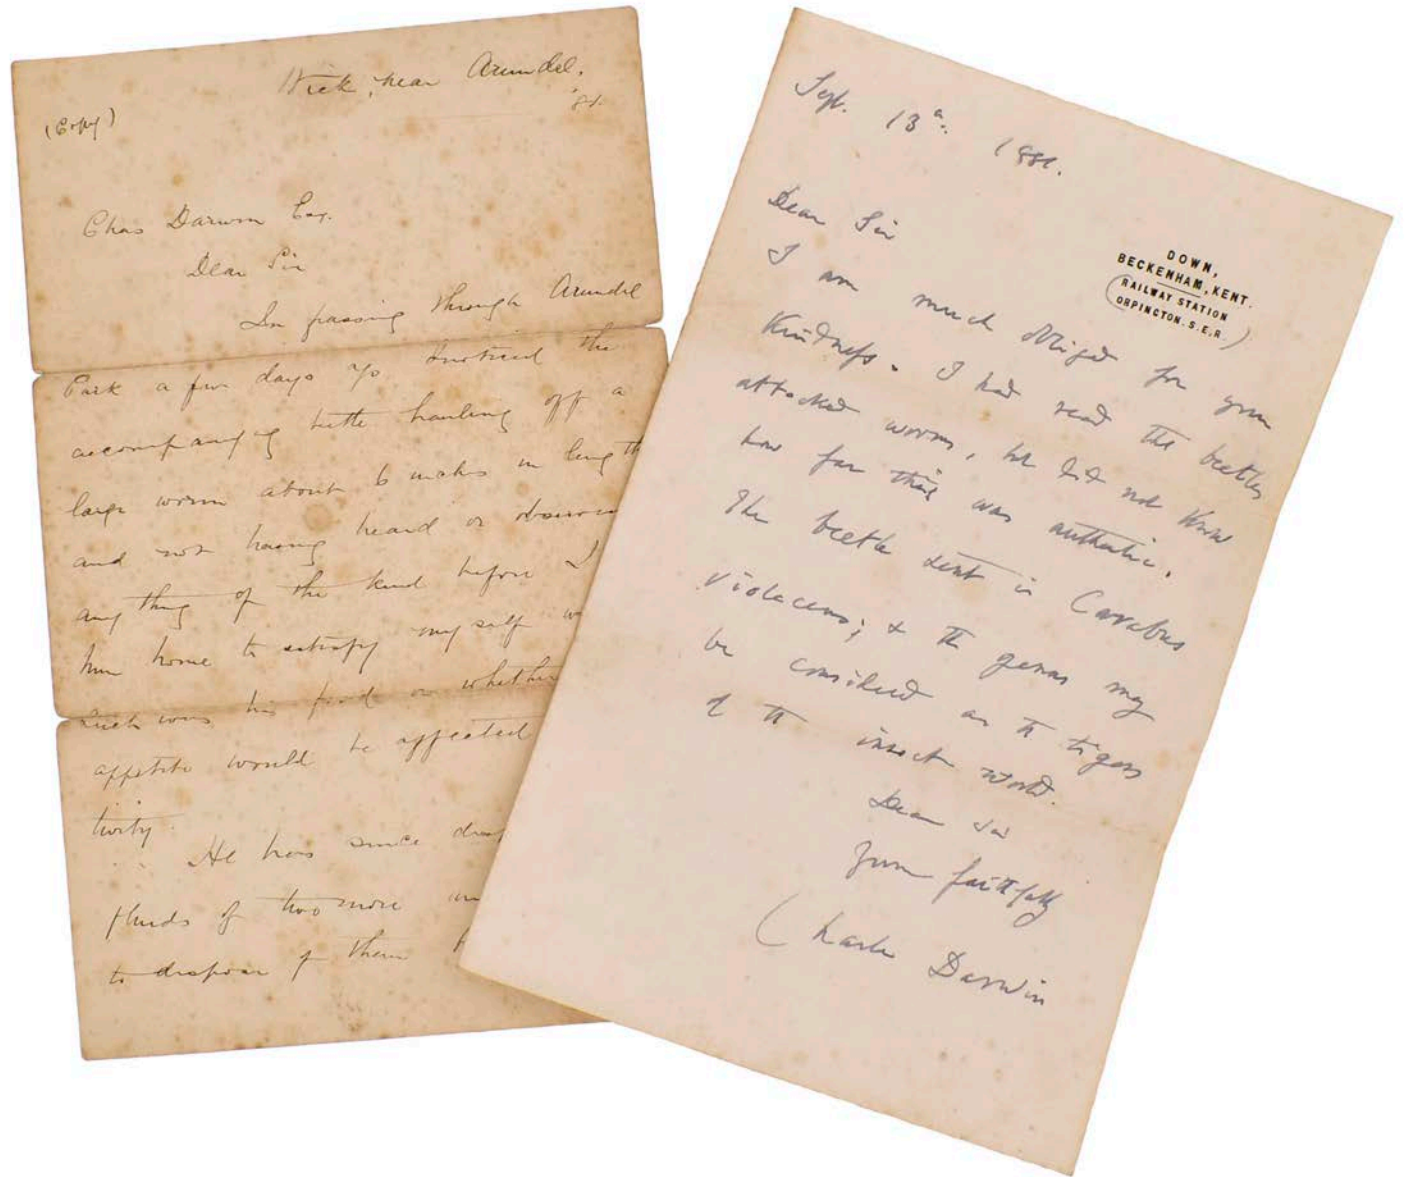 Wick, near Arundel.
'81.
(Copy)
Chas Darwin Esq.
Dear Sir
In passing through Arundel
Park a few days ago I noticed the
accompanying beetle hauling off a
large worm about 6 inches in length
and not having heard or observed
any thing of the kind before I
him home to satisfy myself
such was his food or whether
appetite would be affected
tivity.
He has since
fluids of two more
to dispose of them
Sept. 13th 1881.
DOWN,
BECKENHAM, KENT.
(RAILWAY STATION
ORPINGTON. S.E.R.)
Dear Sir
I am much obliged for your
kindness. I had read the beetles
attacked worms, but did not know
how far this was authentic.
The beetle sent is Carabus
violaceus; & the genus may
be considered as the tigers
of the insect world.
Dear Sir
Yours faithfully
Charles Darwin